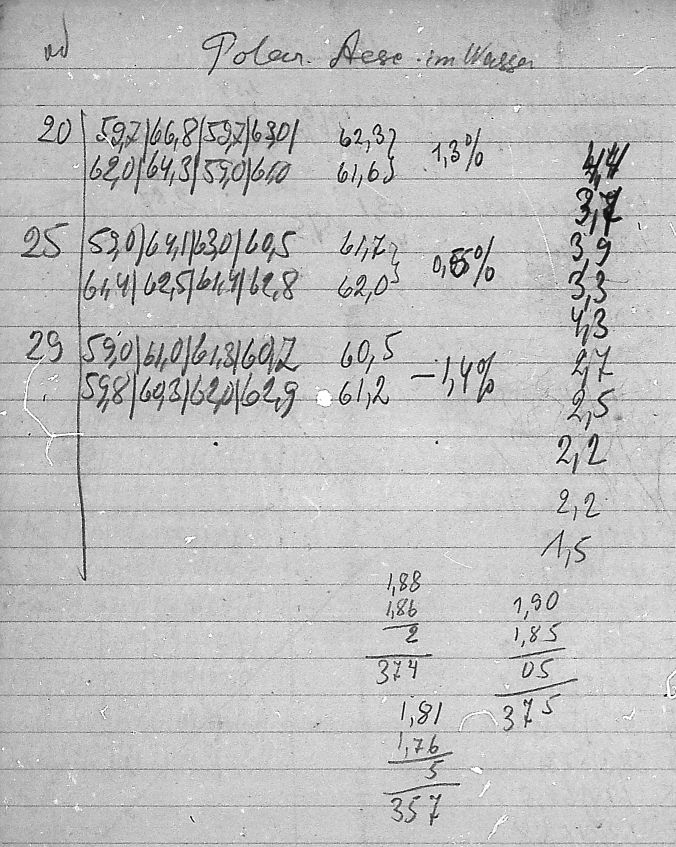 Polar. Aese. im Wasser
20 | 59,7 | 66,8 | 59,7 | 63,0 | 62,3 } 1,3%
62,0 | 64,3 | 59,0 | 61,0 61,6 }
4,4
3,7
25 | 59,0 | 64,1 | 63,0 | 60,5 61,7 } 0,55%
3,9
61,4 | 62,5 | 61,4 | 62,8 62,0 }
3,3
4,3
29 | 59,0 | 61,0 | 61,3 | 60,2 60,5 — 1,4%
2,7
59,8 | 60,3 | 62,0 | 62,9 61,2
2,5
2,2
2,2
1,5
1,88
1,86 1,90
2 1,85
374 05
375
1,81
1,76
5
357